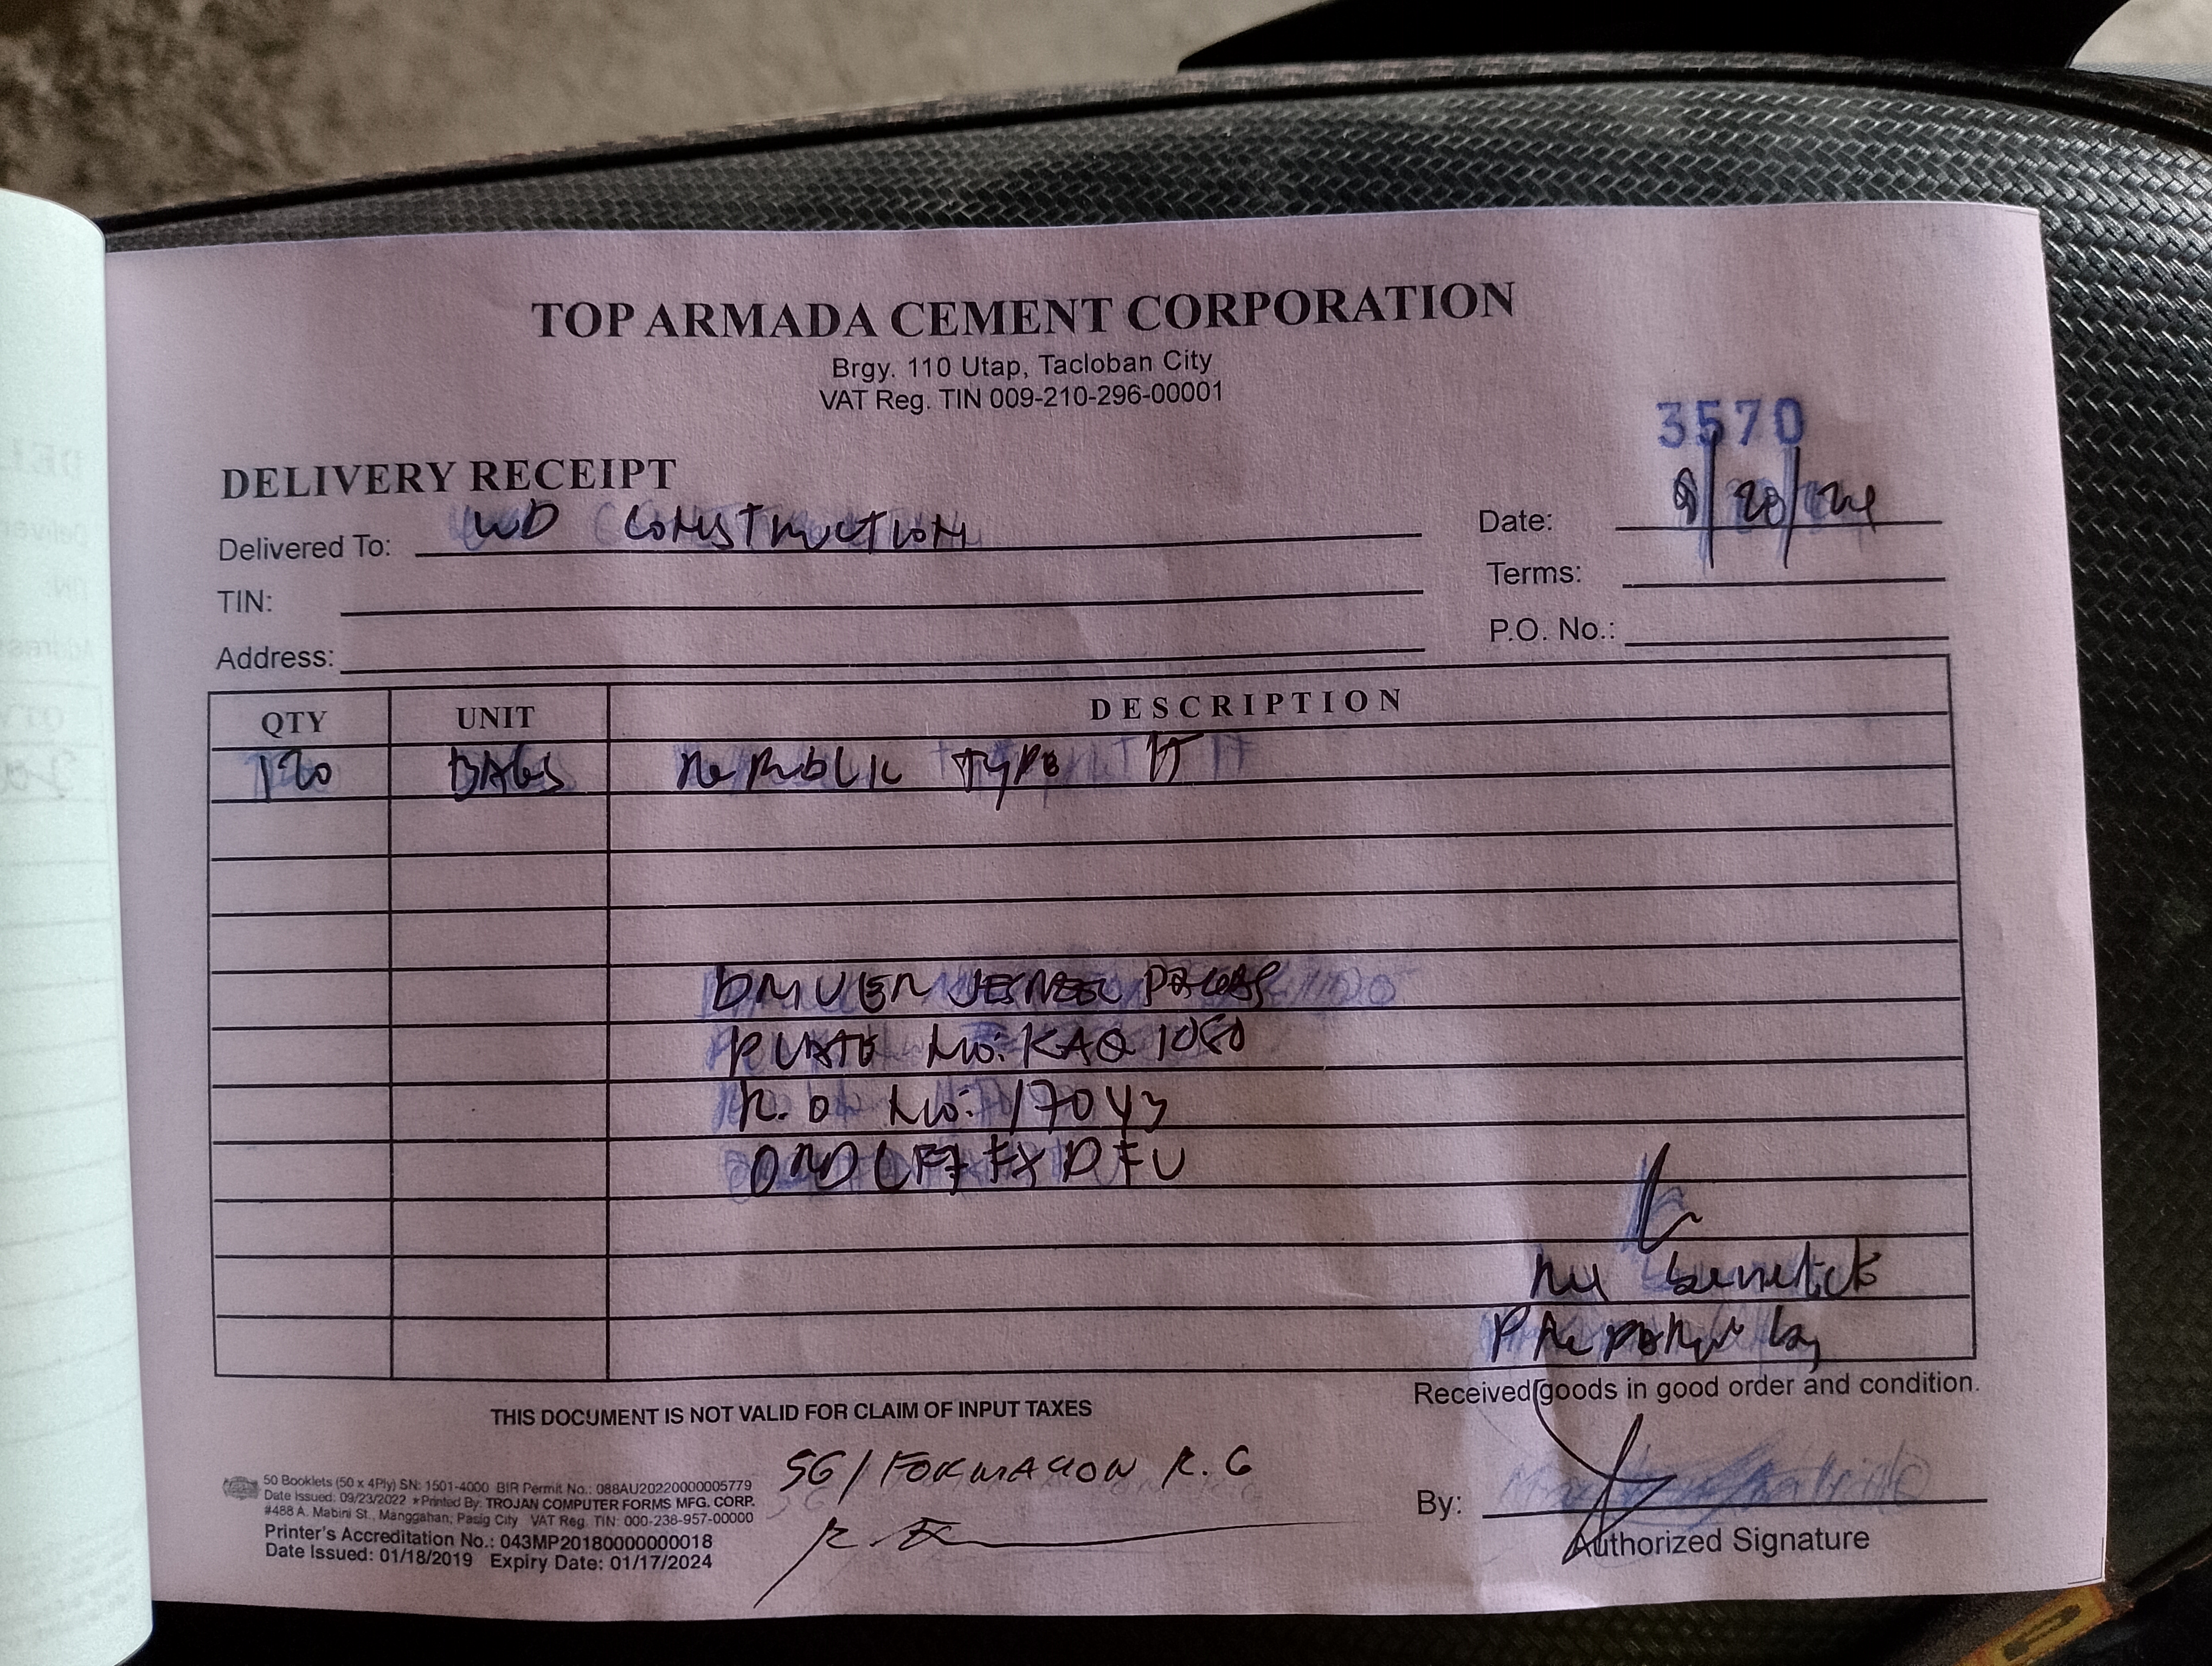 TOP ARMADA CEMENT CORPORATION
Brgy. 110 Utap, Tacloban City
VAT Reg. TIN 009-210-296-00001
3570
DELIVERY RECEIPT
Delivered To: WD CONSTRUCTION
Date: 9/20/24
TIN:
Terms:
Address:
P.O. No.:
QTY UNIT DESCRIPTION
120 BAGS REPUBLIC TYPE 1T
DRIVER
PLATE No: KAQ 1080
R.O No: 17043
Received goods in good order and condition.
THIS DOCUMENT IS NOT VALID FOR CLAIM OF INPUT TAXES
SG/FORMACION R. G
50 Booklets (50 x 4Ply) SN: 1501-4000 BIR Permit No.: 088AU20220000005779
Date Issued: 09/23/2022 * Printed By: TROJAN COMPUTER FORMS MFG. CORP.
#488 A. Mabini St., Manggahan, Pasig City VAT Reg. TIN: 000-238-957-00000
Printer's Accreditation No.: 043MP20180000000018
Date Issued: 01/18/2019 Expiry Date: 01/17/2024
By:
Authorized Signature